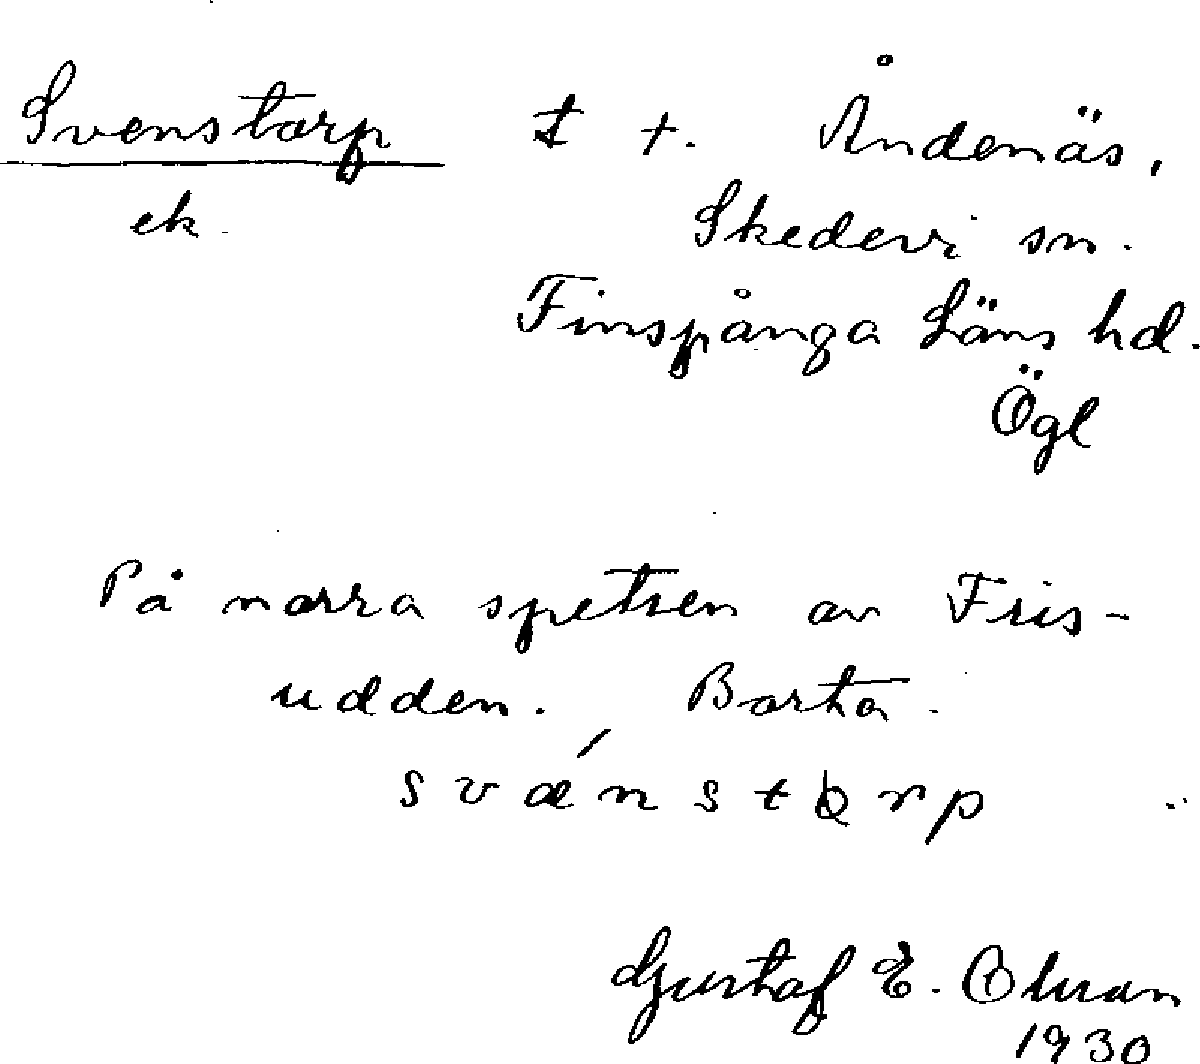 Svenstorp t +. Åndenäs,
ek. Skedevi sn.
Finspånga Läns hd.
Ögl
På norra spetsen av Fris-
udden. Borta.
svǽnstɷrp
Gustaf E. Olsson
1930